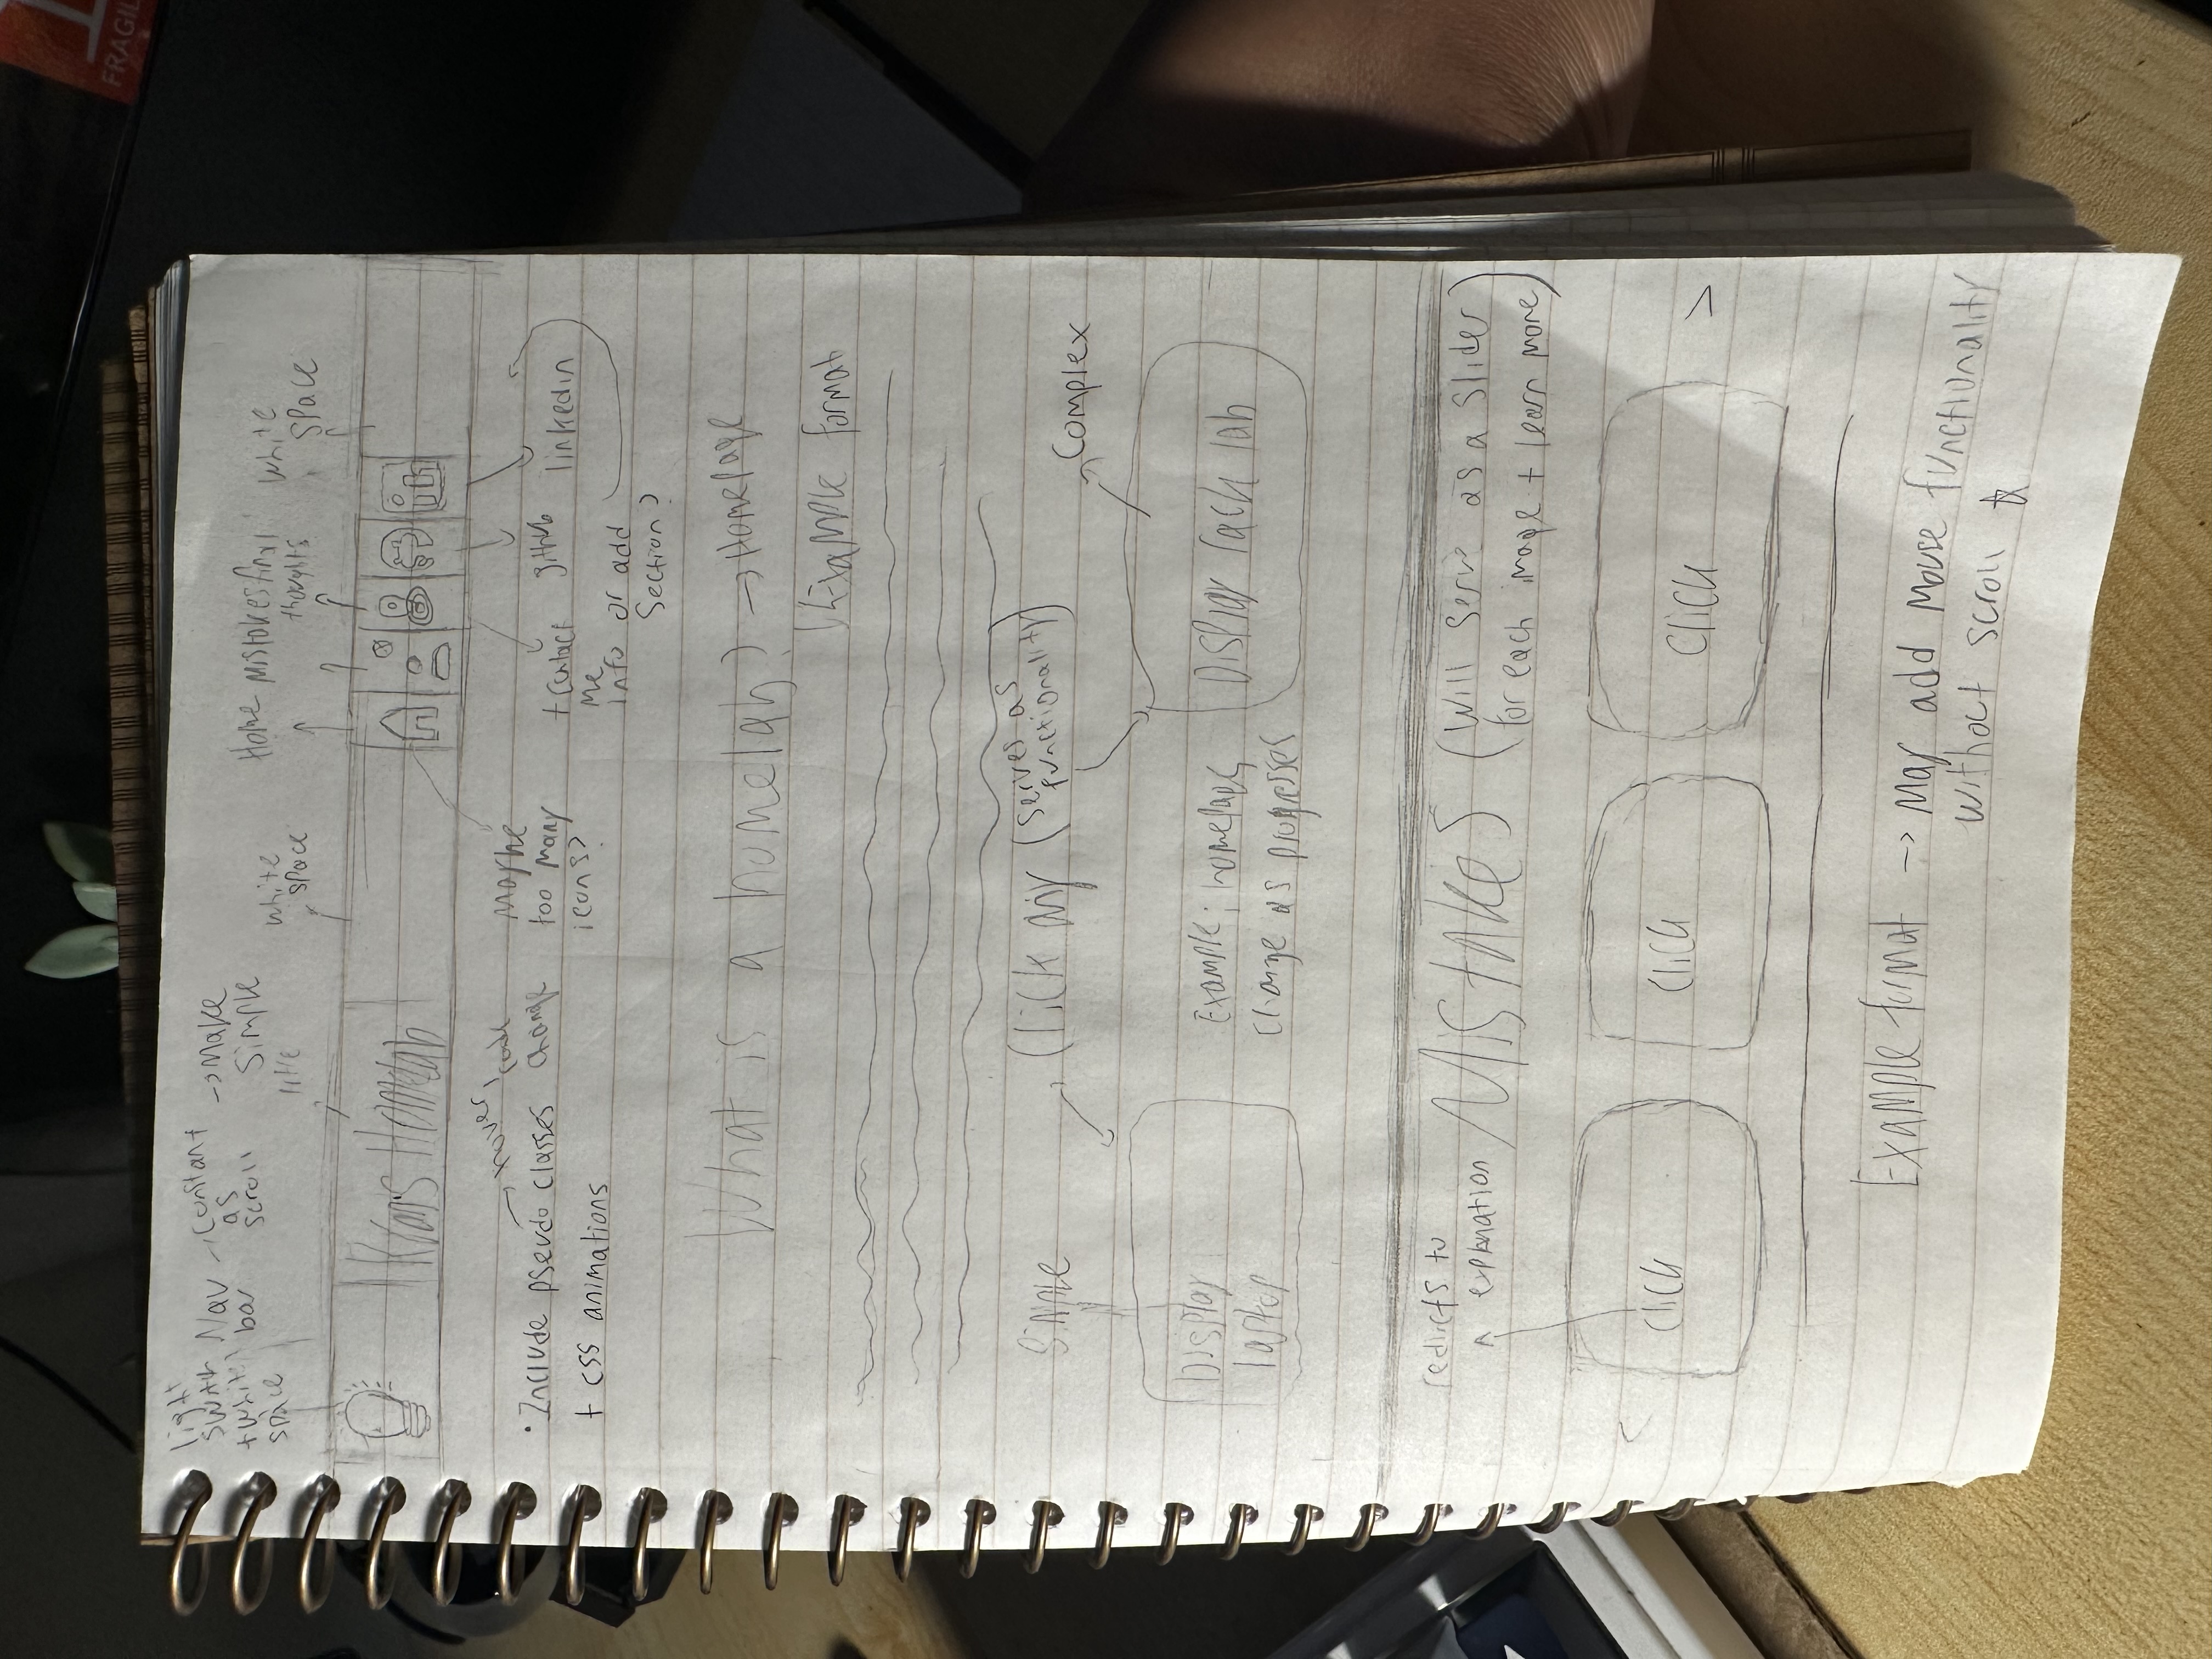 light
switch
+ white
space
Nav
bar
constant
as
scroll
→ Make
simple
title
white
space
Home
Mistakes
final
thoughts
white
space
Homelab
in
• Include pseudo classes
→ hover,
change
+ css animations
Maybe
too many
icons?
+ contact
me
info or add
section?
github
linkedin
What is a homelab? → Homepage
Example format
Simple
Click any (serves as
functionality)
Complex
Display
laptop
Example; homepage,
change as progresses
Display rack lab
redircts to
explanation
Mistakes
(Will serve as a slider
for each image + learn more)
<
click
click
click
>
Example format → may add mouse functionality
without scroll ☆
FRAGIL